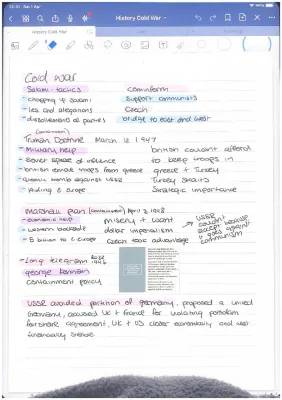 History Cold War
History Cold War
Cold war
Salami-tactics
Cominform
- chopping of salami
Support communists
- lies and allegations
Czech
- dissolvement of parties
bridge to east and west
(containment)
Truman Doctrine March 12 1947
- Military help
british couldn't afford
- Soviet sphere of influence
to keep troops in
- british remove troops from greece
greece + Turkey
Turkey Straits
- Aiding € Europe
Strategic importance
Marshall plan (containment) April 3, 1948
- economic help
misery + want
- western
dollar imperialism
Czech took advantage
USSR
couldn't
accept because
it goes against
communism
- Long telegram
george kennan
containment policy
USSR avoided partition of germany, proposed a united
Germany, accused UK + france for violating potsdam
agreement, UK + US closer economically and